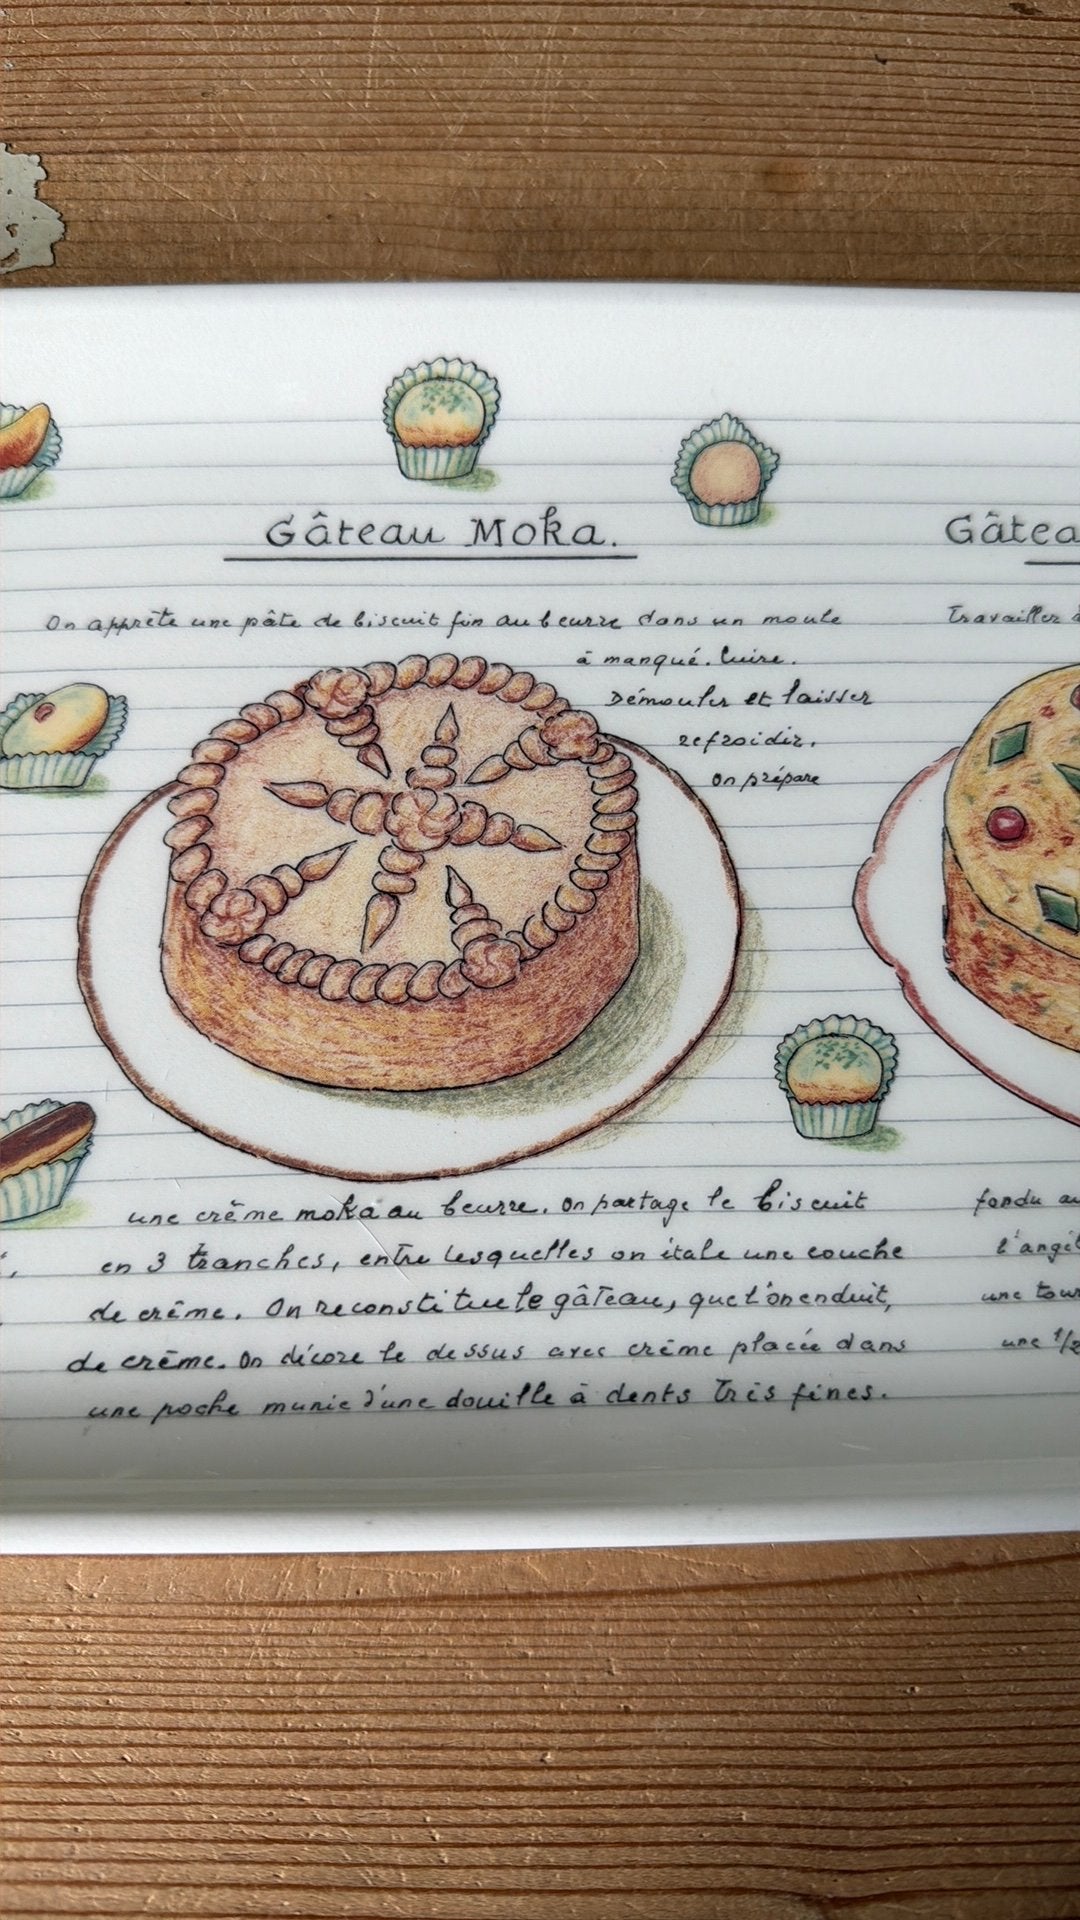 Gâteau Moka.
On apprête une pâte de biscuit fin au beurre dans un moule
à manqué. Cuire.
Démouler et laisser
refroidir.
On prépare
une crême moka au beurre. On partage le biscuit
en 3 tranches, entre lesquelles on étale une couche
de crême. On reconstitue le gâteau, que l'on enduit,
de crême. On décore le dessus avec crême placée dans
une poche munie d'une douille à dents très fines.
Gâtea
Travailler
fondu au
l'angél
une tour
une 1/2